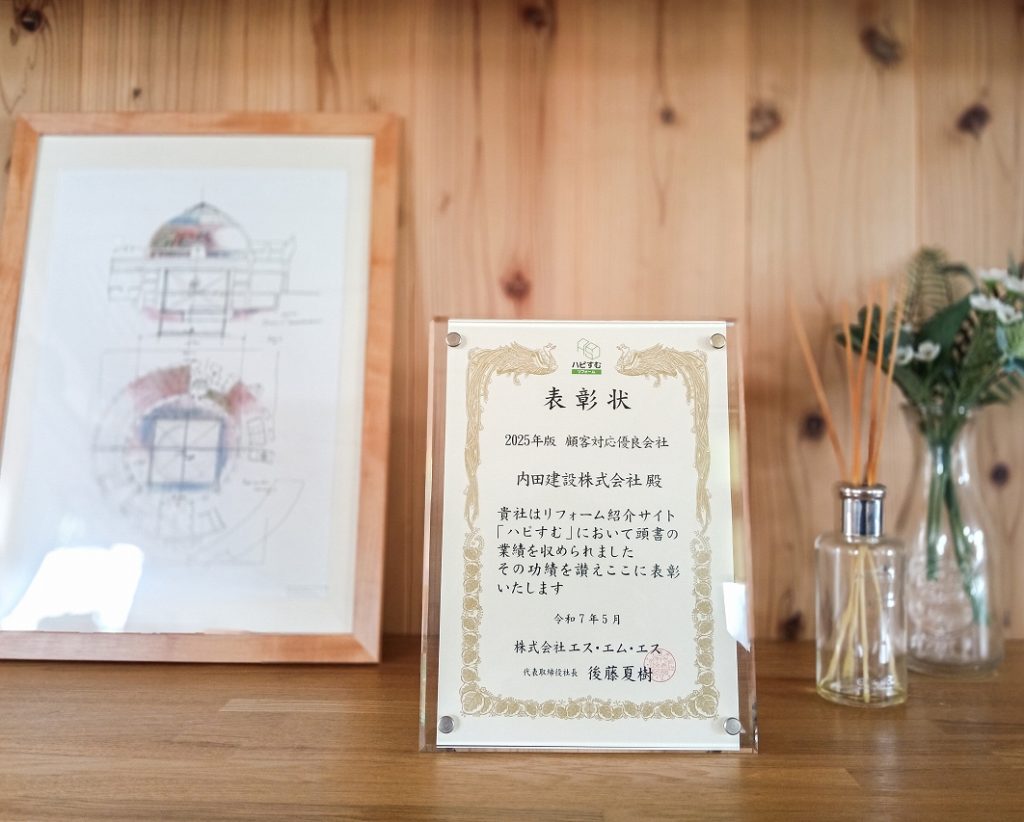 ハピすむ
リフォーム
表彰状
2025年版 顧客対応優良会社
内田建設株式会社 殿
貴社はリフォーム紹介サイト
「ハピすむ」において頭書の
業績を収められました
その功績を讃えここに表彰
いたします
令和7年5月
株式会社エス・エム・エス
代表取締役社長 後藤夏樹